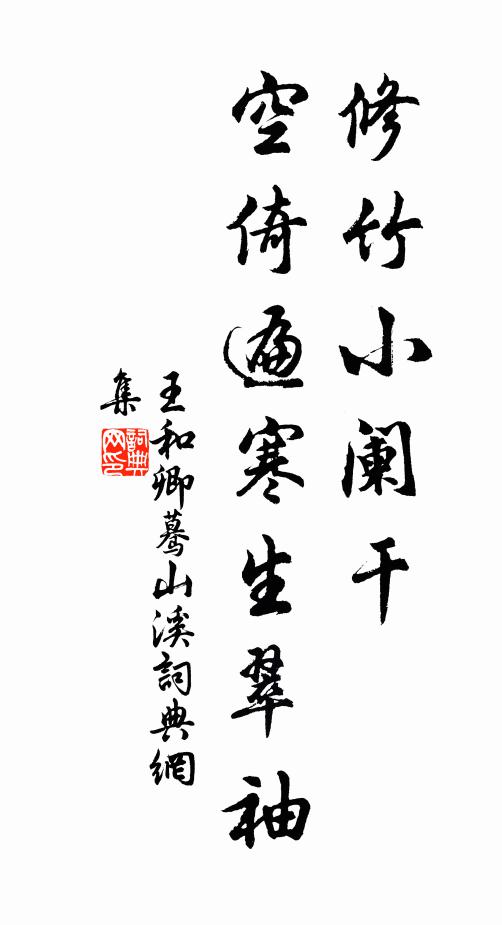 修竹小阑干
空倚遍寒生翠袖
王和卿蓦山溪詞典網
集
詞典
网印